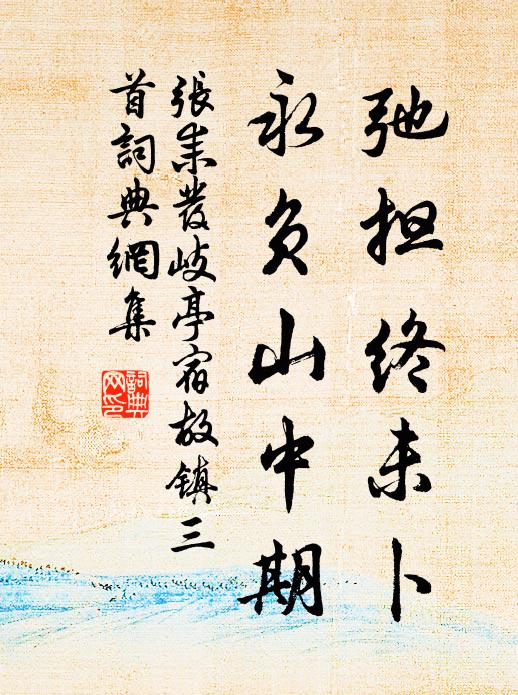 弛担终未卜
永负山中期
張耒發岐亭宿故鎮三
首詞典網集
詞典
网印